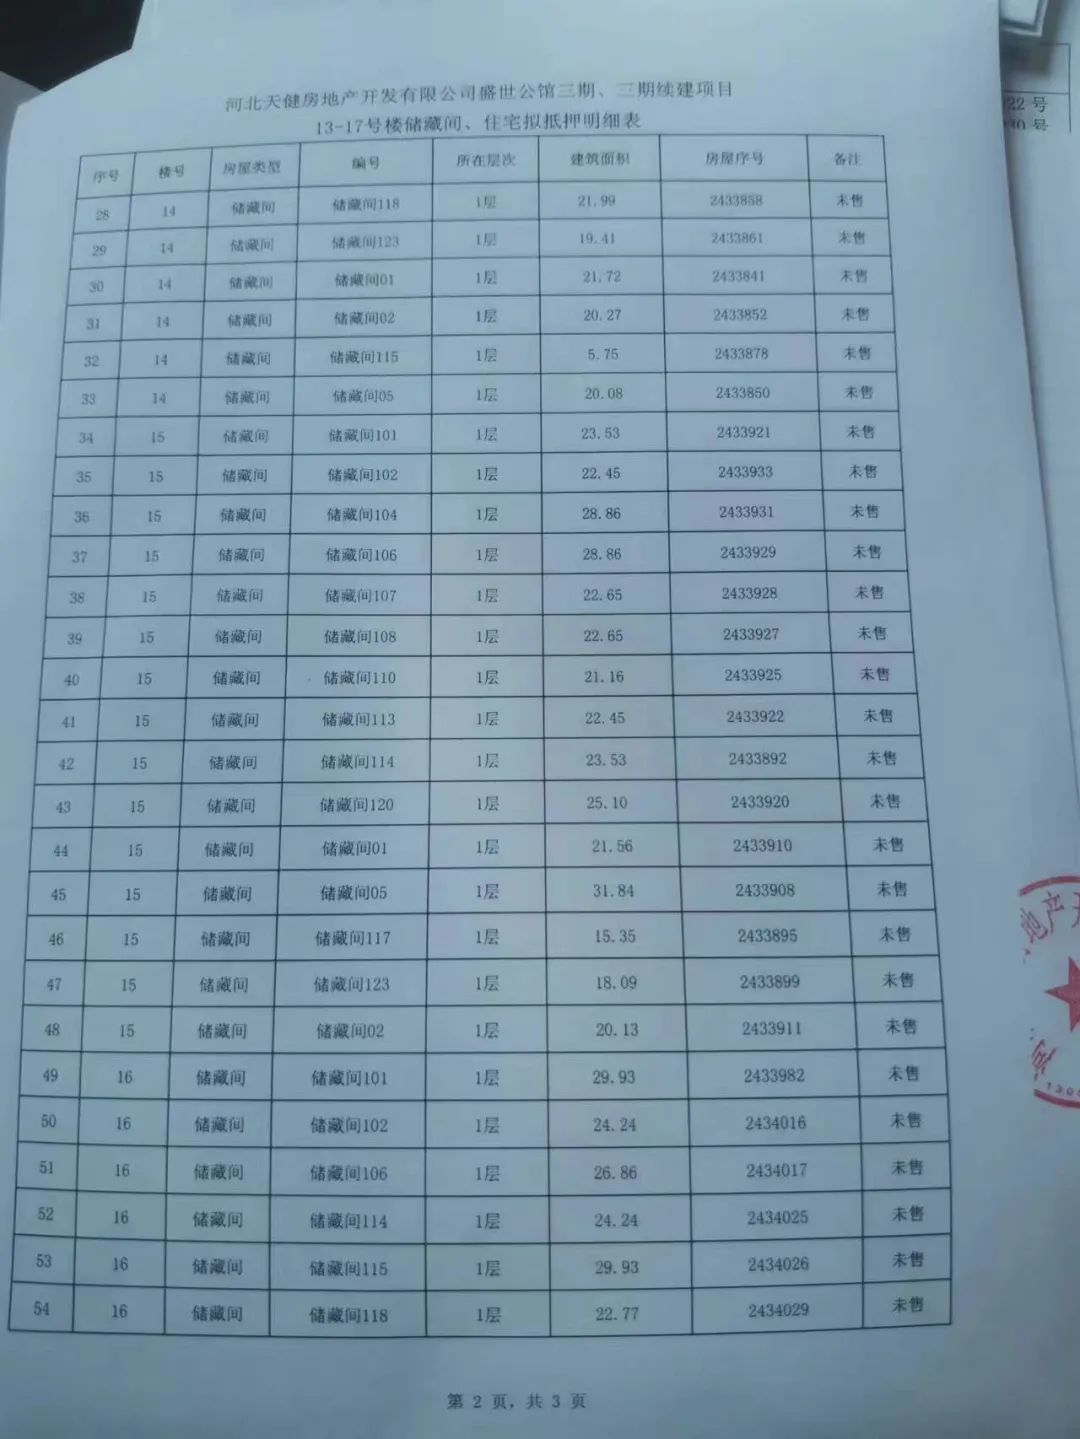 河北天健房地产开发有限公司盛世公馆二期、三期续建项目
13-17号楼储藏间、住宅拟抵押明细表
序号 楼号 房屋类型 编号 所在层次 建筑面积 房屋序号 备注
28 14 储藏间 储藏间118 1层 21.99 2433858 未售
29 14 储藏间 储藏间123 1层 19.41 2433861 未售
30 14 储藏间 储藏间01 1层 21.72 2433841 未售
31 14 储藏间 储藏间02 1层 20.27 2433852 未售
32 14 储藏间 储藏间115 1层 5.75 2433878 未售
33 14 储藏间 储藏间05 1层 20.08 2433850 未售
34 15 储藏间 储藏间101 1层 23.53 2433921 未售
35 15 储藏间 储藏间102 1层 22.45 2433933 未售
36 15 储藏间 储藏间104 1层 28.86 2433931 未售
37 15 储藏间 储藏间106 1层 28.86 2433929 未售
38 15 储藏间 储藏间107 1层 22.65 2433928 未售
39 15 储藏间 储藏间108 1层 22.65 2433927 未售
40 15 储藏间 储藏间110 1层 21.16 2433925 未售
41 15 储藏间 储藏间113 1层 22.45 2433922 未售
42 15 储藏间 储藏间114 1层 23.53 2433892 未售
43 15 储藏间 储藏间120 1层 25.10 2433920 未售
44 15 储藏间 储藏间01 1层 21.56 2433910 未售
45 15 储藏间 储藏间05 1层 31.84 2433908 未售
46 15 储藏间 储藏间117 1层 15.35 2433895 未售
47 15 储藏间 储藏间123 1层 18.09 2433899 未售
48 15 储藏间 储藏间02 1层 20.13 2433911 未售
49 16 储藏间 储藏间101 1层 29.93 2433982 未售
50 16 储藏间 储藏间102 1层 24.24 2434016 未售
51 16 储藏间 储藏间106 1层 26.86 2434017 未售
52 16 储藏间 储藏间114 1层 24.24 2434025 未售
53 16 储藏间 储藏间115 1层 29.93 2434026 未售
54 16 储藏间 储藏间118 1层 22.77 2434029 未售
第 2 页，共 3 页
22 号
地产